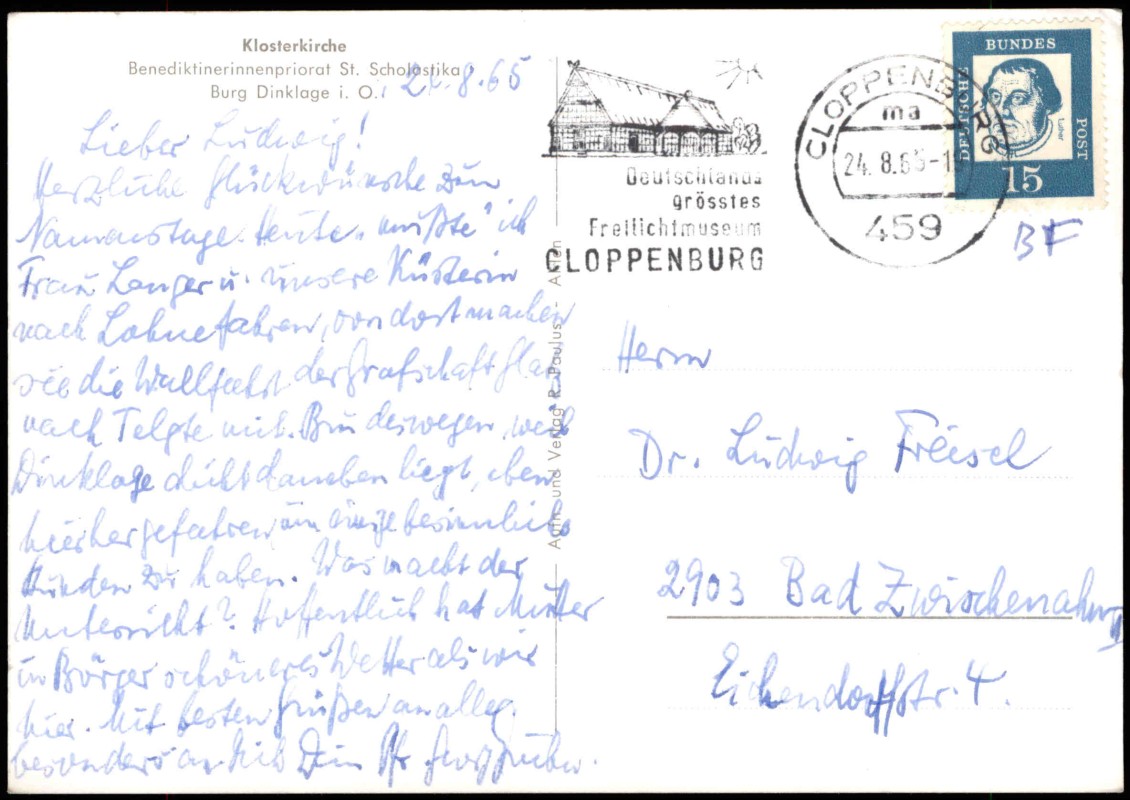 Klosterkirche
Benediktinerinnenpriorat St. Scholastika
Burg Dinklage i. O.
24.8.65
Lieber Ludwig!
Herzliche Glückwünsche zum
Namenstage. Heute "mußte" ich
Frau Langer u. unsere Küsterin
nach Lohne fahren, von dort machen
sie die Wallfahrt der Grafschaft Glatz
nach Telgte mit. Bin deswegen, weil
Dinklage dicht daneben liegt, eben
hierher gefahren, um einige besinnliche
Stunden zu haben. Was macht der
Unterricht? Hoffentlich hat Mutter
in Börger schöneres Wetter als wir
hier. Mit besten Grüßen an alle,
besonders an Dich Dein Pfr. Georg
Agfa und Verlag R. Paulus -
Deutschlands
grösstes
Freilichtmuseum
CLOPPENBURG
CLOPPENBURG
ma
24.8.65-1
459
DEUTSCHE
BUNDES
POST
Luther
15
BF
Herrn
Dr. Ludwig Freesel
2903 Bad Zwischenahn II
Eichendorffstr. 4.